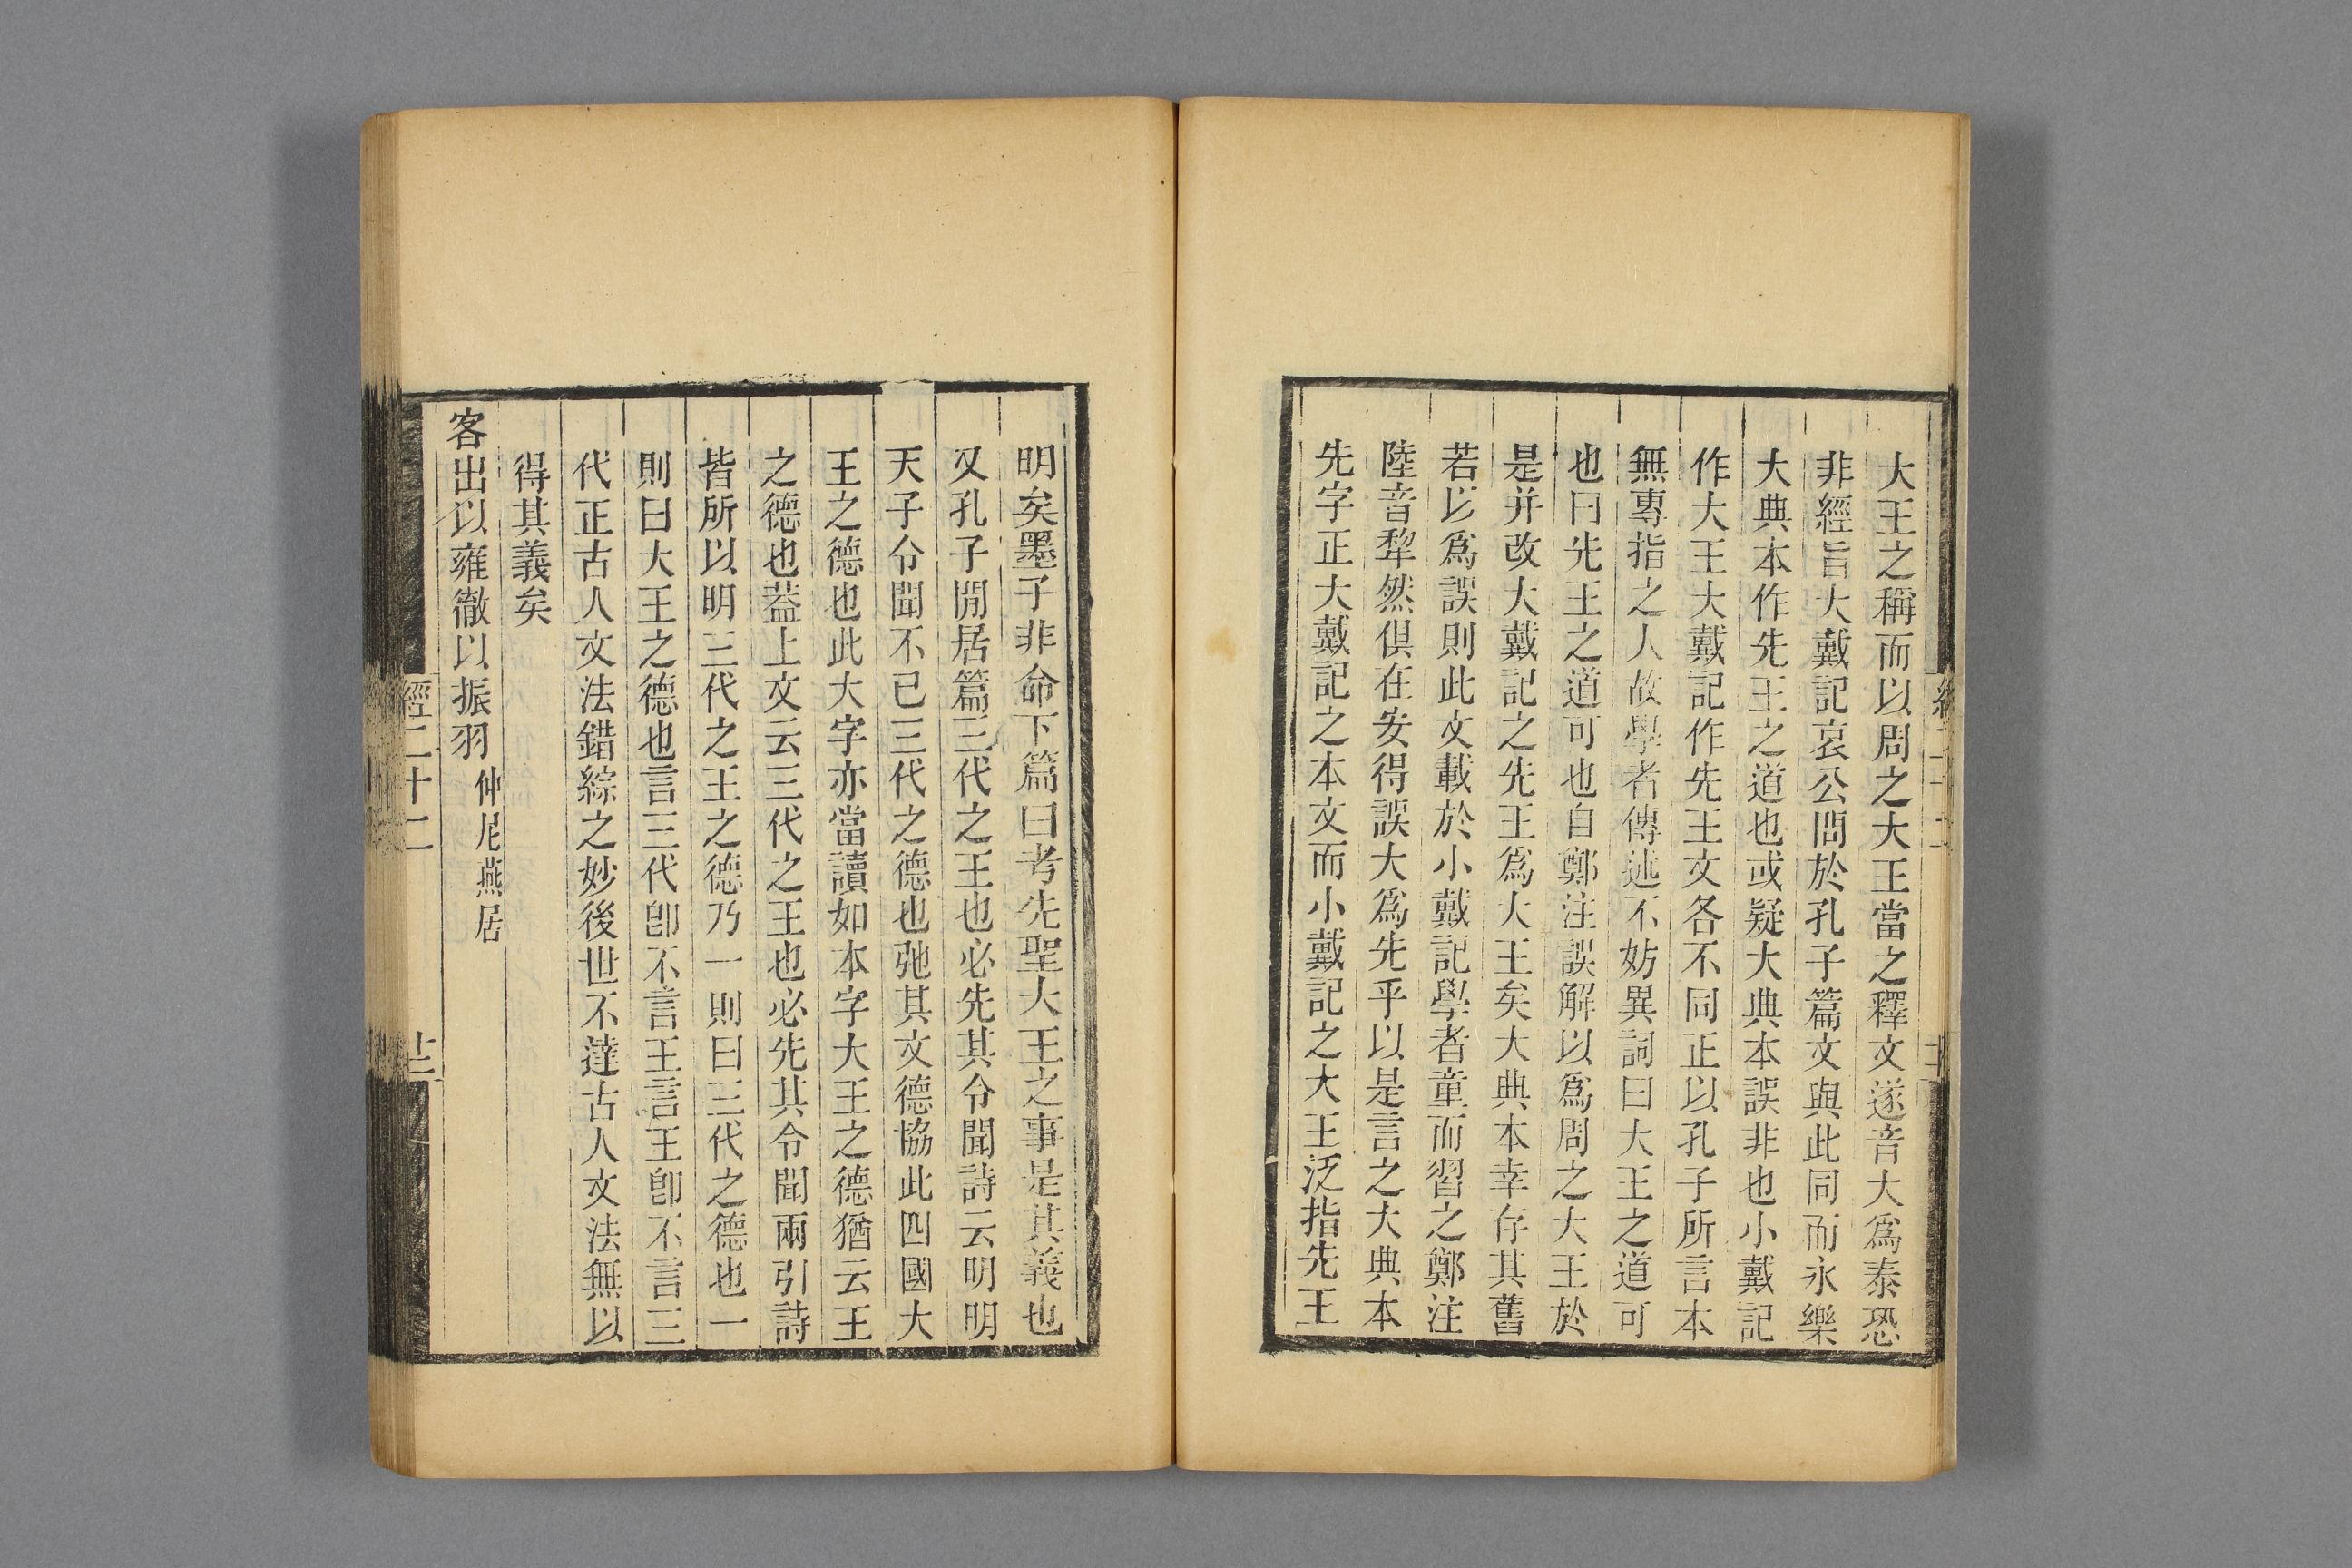 大王之稱而以周之大王當之釋文遂音大爲泰恐
非經旨大戴記哀公問於孔子篇文與此同而永樂
大典本作先王之道也或疑大典本誤非也小戴記
作大王大戴記作先王文各不同正以孔子所言本
無專指之人故學者傳述不妨異詞曰大王之道可
也曰先王之道可也自鄭注誤解以爲周之大王於
是并改大戴記之先王爲大王矣大典本幸存其舊
若以爲誤則此文載於小戴記學者童而習之鄭注
陸音犂然俱在安得誤大爲先乎以是言之大典本
先字正大戴記之本文而小戴記之大王泛指先王
明矣墨子非命下篇曰考先聖大王之事是其義也
又孔子閒居篇三代之王也必先其令聞詩云明明
天子令聞不已三代之德也弛其文德協此四國大
王之德也此大字亦當讀如本字大王之德猶云王
之德也葢上文云三代之王也必先其令聞兩引詩
皆所以明三代之王之德乃一則曰三代之德也一
則曰大王之德也言三代卽不言王言王卽不言三
代正古人文法錯綜之妙後世不達古人文法無以
得其義矣
客出以雍徹以振羽仲尼燕居
經二十二